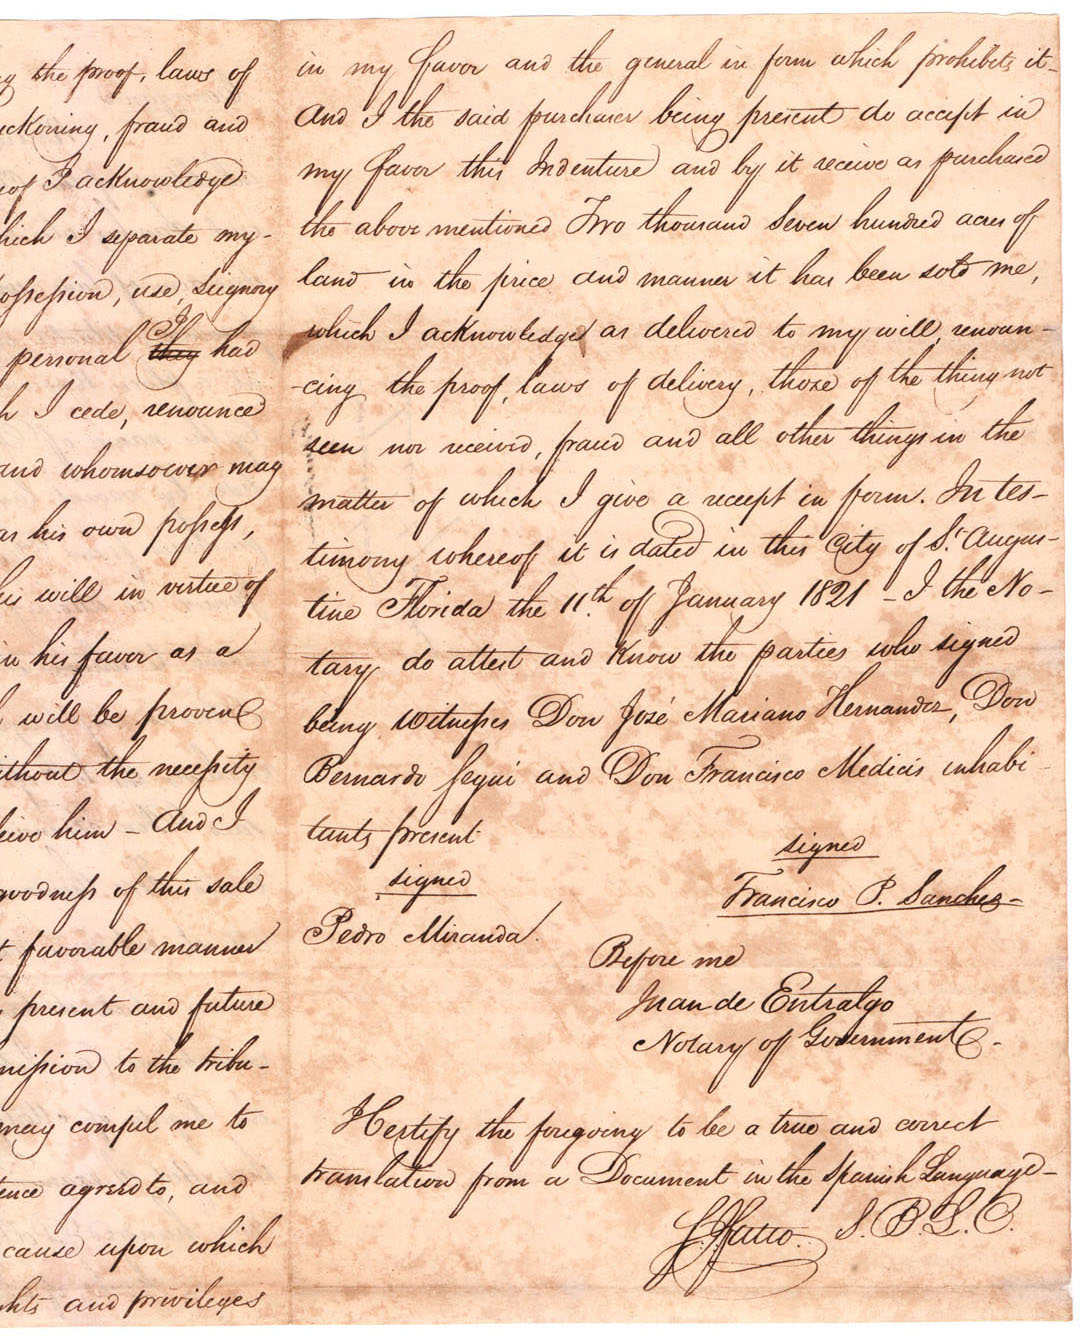 the proof, laws of
fraud and
I acknowledge
I separate my-
use, Seignory
I
personal they had
I cede, renounce
and whomsoever may
as his own possess,
will in virtue of
in his favor as a
will be proven
the necessity
him - And I
of this sale
favorable manner
present and future
to the tribu-
may compel me to
agreed to, and
cause upon which
and privileges
in my favor and the general in form which prohibits it-
And I the said purchaser being present do accept in
my favor this Indenture and by it receive as purchased
the above mentioned Two thousand Seven hundred acres of
land in the price and manner it has been sold me,
which I acknowledge as delivered to my will, renoun-
-cing the proof, laws of delivery, those of the thing not
seen nor received, fraud and all other things in the
matter of which I give a receipt in form. In tes-
timony whereof it is dated in this City of St. Augus-
tine Florida the 11th. of January 1821 - I the No-
tary do attest and know the parties who signed
being witnesses Don José Mariano Hernandez, Don
Bernardo Segui and Don Francisco Medicis inhabi-
tants present
signed
Pedro Miranda.
signed
Francisco P. Sanchez-
Before me
Juan de Entralgo
Notary of Government-
I Certify the foregoing to be a true and correct
translation from a Document in the Spanish Language-
S. B. L. C.